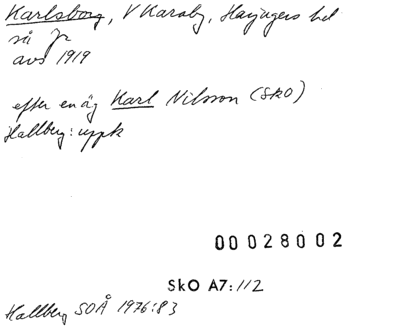 Karlsborg, V Karaby, Harjagers hd
så Jr
avs 1919
efter en äg Karl Nilsson (SkO)
Hallberg: uppk
00028002
SkO A7:112
Hallberg SOÅ 1976:83